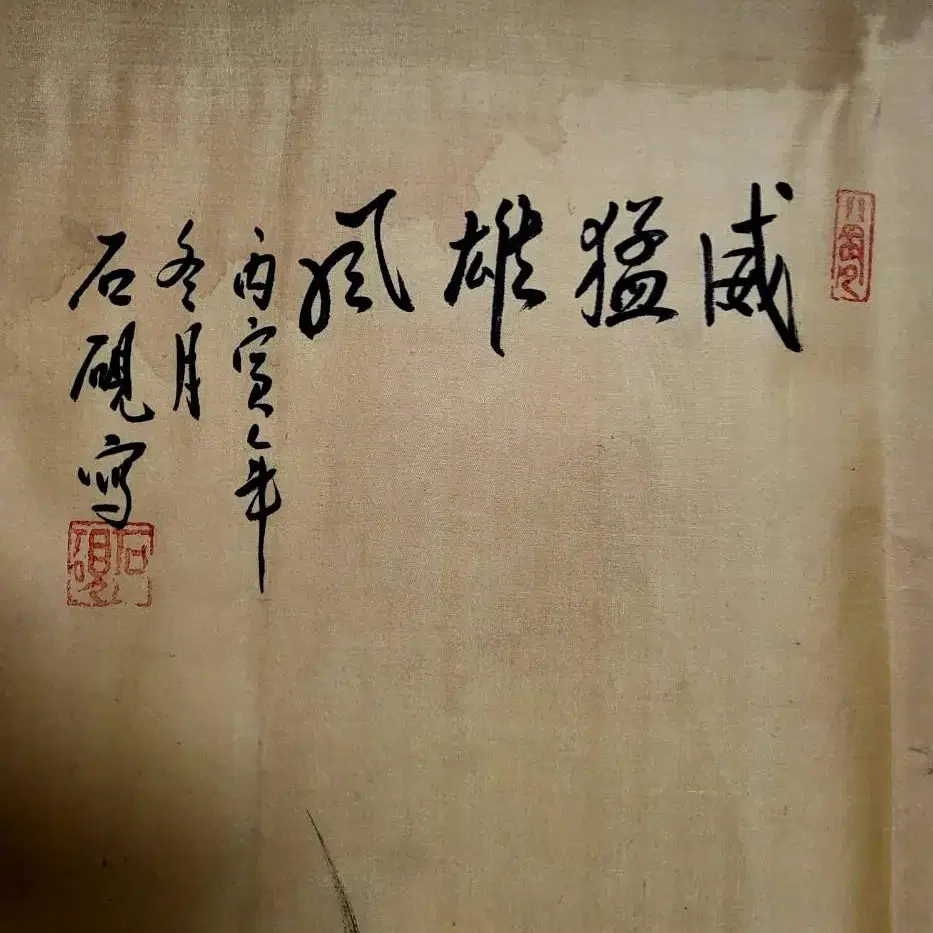 威猛雄風
丙寅年
冬月
石硯写